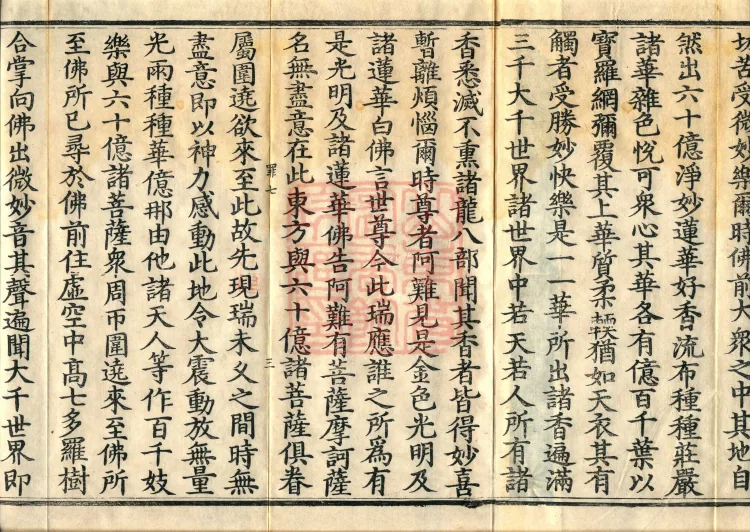 切苦受微妙樂爾時佛前大衆之中其地自
然出六十億淨妙蓮華好香流布種種莊嚴
諸華雜色悅可衆心其華各有億百千葉以
寶羅網彌覆其上華質柔輭猶如天衣其有
觸者受勝妙快樂是一一華所出諸香遍滿
三千大千世界諸世界中若天若人所有諸
香悉滅不熏諸龍八部聞其香者皆得妙喜
暫離煩惱爾時尊者阿難見是金色光明及
諸蓮華白佛言世尊今此瑞應誰之所爲有
是光明及諸蓮華佛告阿難有菩薩摩訶薩
名無盡意在此東方與六十億諸菩薩俱眷
罪七
三
屬圍遶欲來至此故先現瑞未久之間時無
盡意即以神力感動此地令大震動放無量
光雨種種華億那由他諸天人等作百千妓
樂與六十億諸菩薩衆周帀圍遶來至佛所
至佛所已尋於佛前住虛空中高七多羅樹
合掌向佛出微妙音其聲遍聞大千世界即